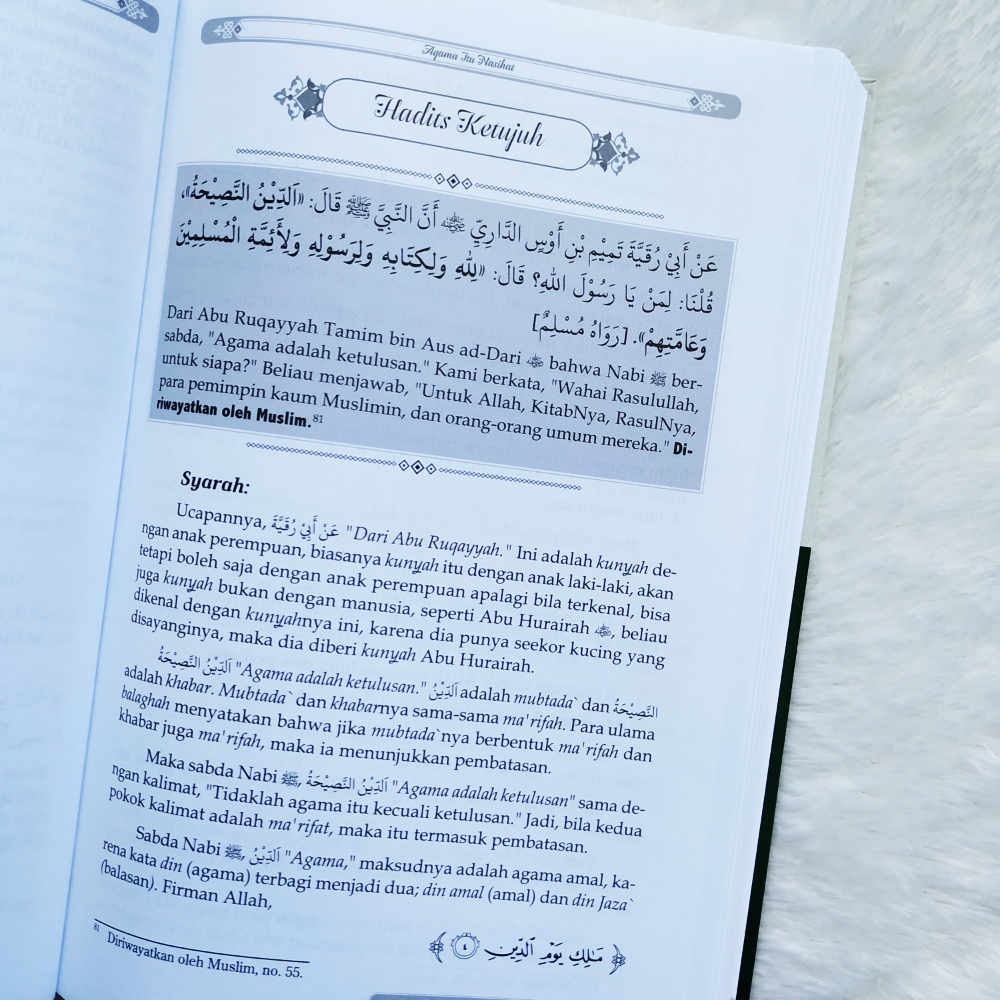 Agama Itu Nasihat
Hadits Ketujuh
عَنْ أَبِيْ رُقَيَّةَ تَمِيْمِ بْنِ أَوْسٍ الدَّارِيِّ ﵁ أَنَّ النَّبِيَّ ﷺ قَالَ: «اَلدِّيْنُ النَّصِيْحَةُ»،
قُلْنَا: لِمَنْ يَا رَسُوْلَ اللهِ؟ قَالَ: «لِلهِ وَلِكِتَابِهِ وَلِرَسُوْلِهِ وَلِأَئِمَّةِ الْمُسْلِمِيْنَ
وَعَامَّتِهِمْ». [رَوَاهُ مُسْلِمٌ]
Dari Abu Ruqayyah Tamim bin Aus ad-Dari ﵁ bahwa Nabi ﷺ ber-
sabda, "Agama adalah ketulusan." Kami berkata, "Wahai Rasulullah,
untuk siapa?" Beliau menjawab, "Untuk Allah, KitabNya, RasulNya,
para pemimpin kaum Muslimin, dan orang-orang umum mereka." Di-
riwayatkan oleh Muslim.81
Syarah:
Ucapannya, عَنْ أَبِيْ رُقَيَّةَ "Dari Abu Ruqayyah." Ini adalah kunyah de-
ngan anak perempuan, biasanya kunyah itu dengan anak laki-laki, akan
tetapi boleh saja dengan anak perempuan apalagi bila terkenal, bisa
juga kunyah bukan dengan manusia, seperti Abu Hurairah ﵁, beliau
dikenal dengan kunyahnya ini, karena dia punya seekor kucing yang
disayanginya, maka dia diberi kunyah Abu Hurairah.
اَلدِّيْنُ النَّصِيْحَةُ "Agama adalah ketulusan." اَلدِّيْنُ adalah mubtada` dan النَّصِيْحَةُ
adalah khabar. Mubtada` dan khabarnya sama-sama ma'rifah. Para ulama
balaghah menyatakan bahwa jika mubtada`nya berbentuk ma'rifah dan
khabar juga ma'rifah, maka ia menunjukkan pembatasan.
Maka sabda Nabi ﷺ, اَلدِّيْنُ النَّصِيْحَةُ "Agama adalah ketulusan" sama de-
ngan kalimat, "Tidaklah agama itu kecuali ketulusan." Jadi, bila kedua
pokok kalimat adalah ma'rifat, maka itu termasuk pembatasan.
Sabda Nabi ﷺ, اَلدِّيْنُ "Agama," maksudnya adalah agama amal, ka-
rena kata din (agama) terbagi menjadi dua; din amal (amal) dan din Jaza`
(balasan). Firman Allah,
﴿ مَـٰلِكِ يَوْمِ ٱلدِّينِ ٤ ﴾
81 Diriwayatkan oleh Muslim, no. 55.